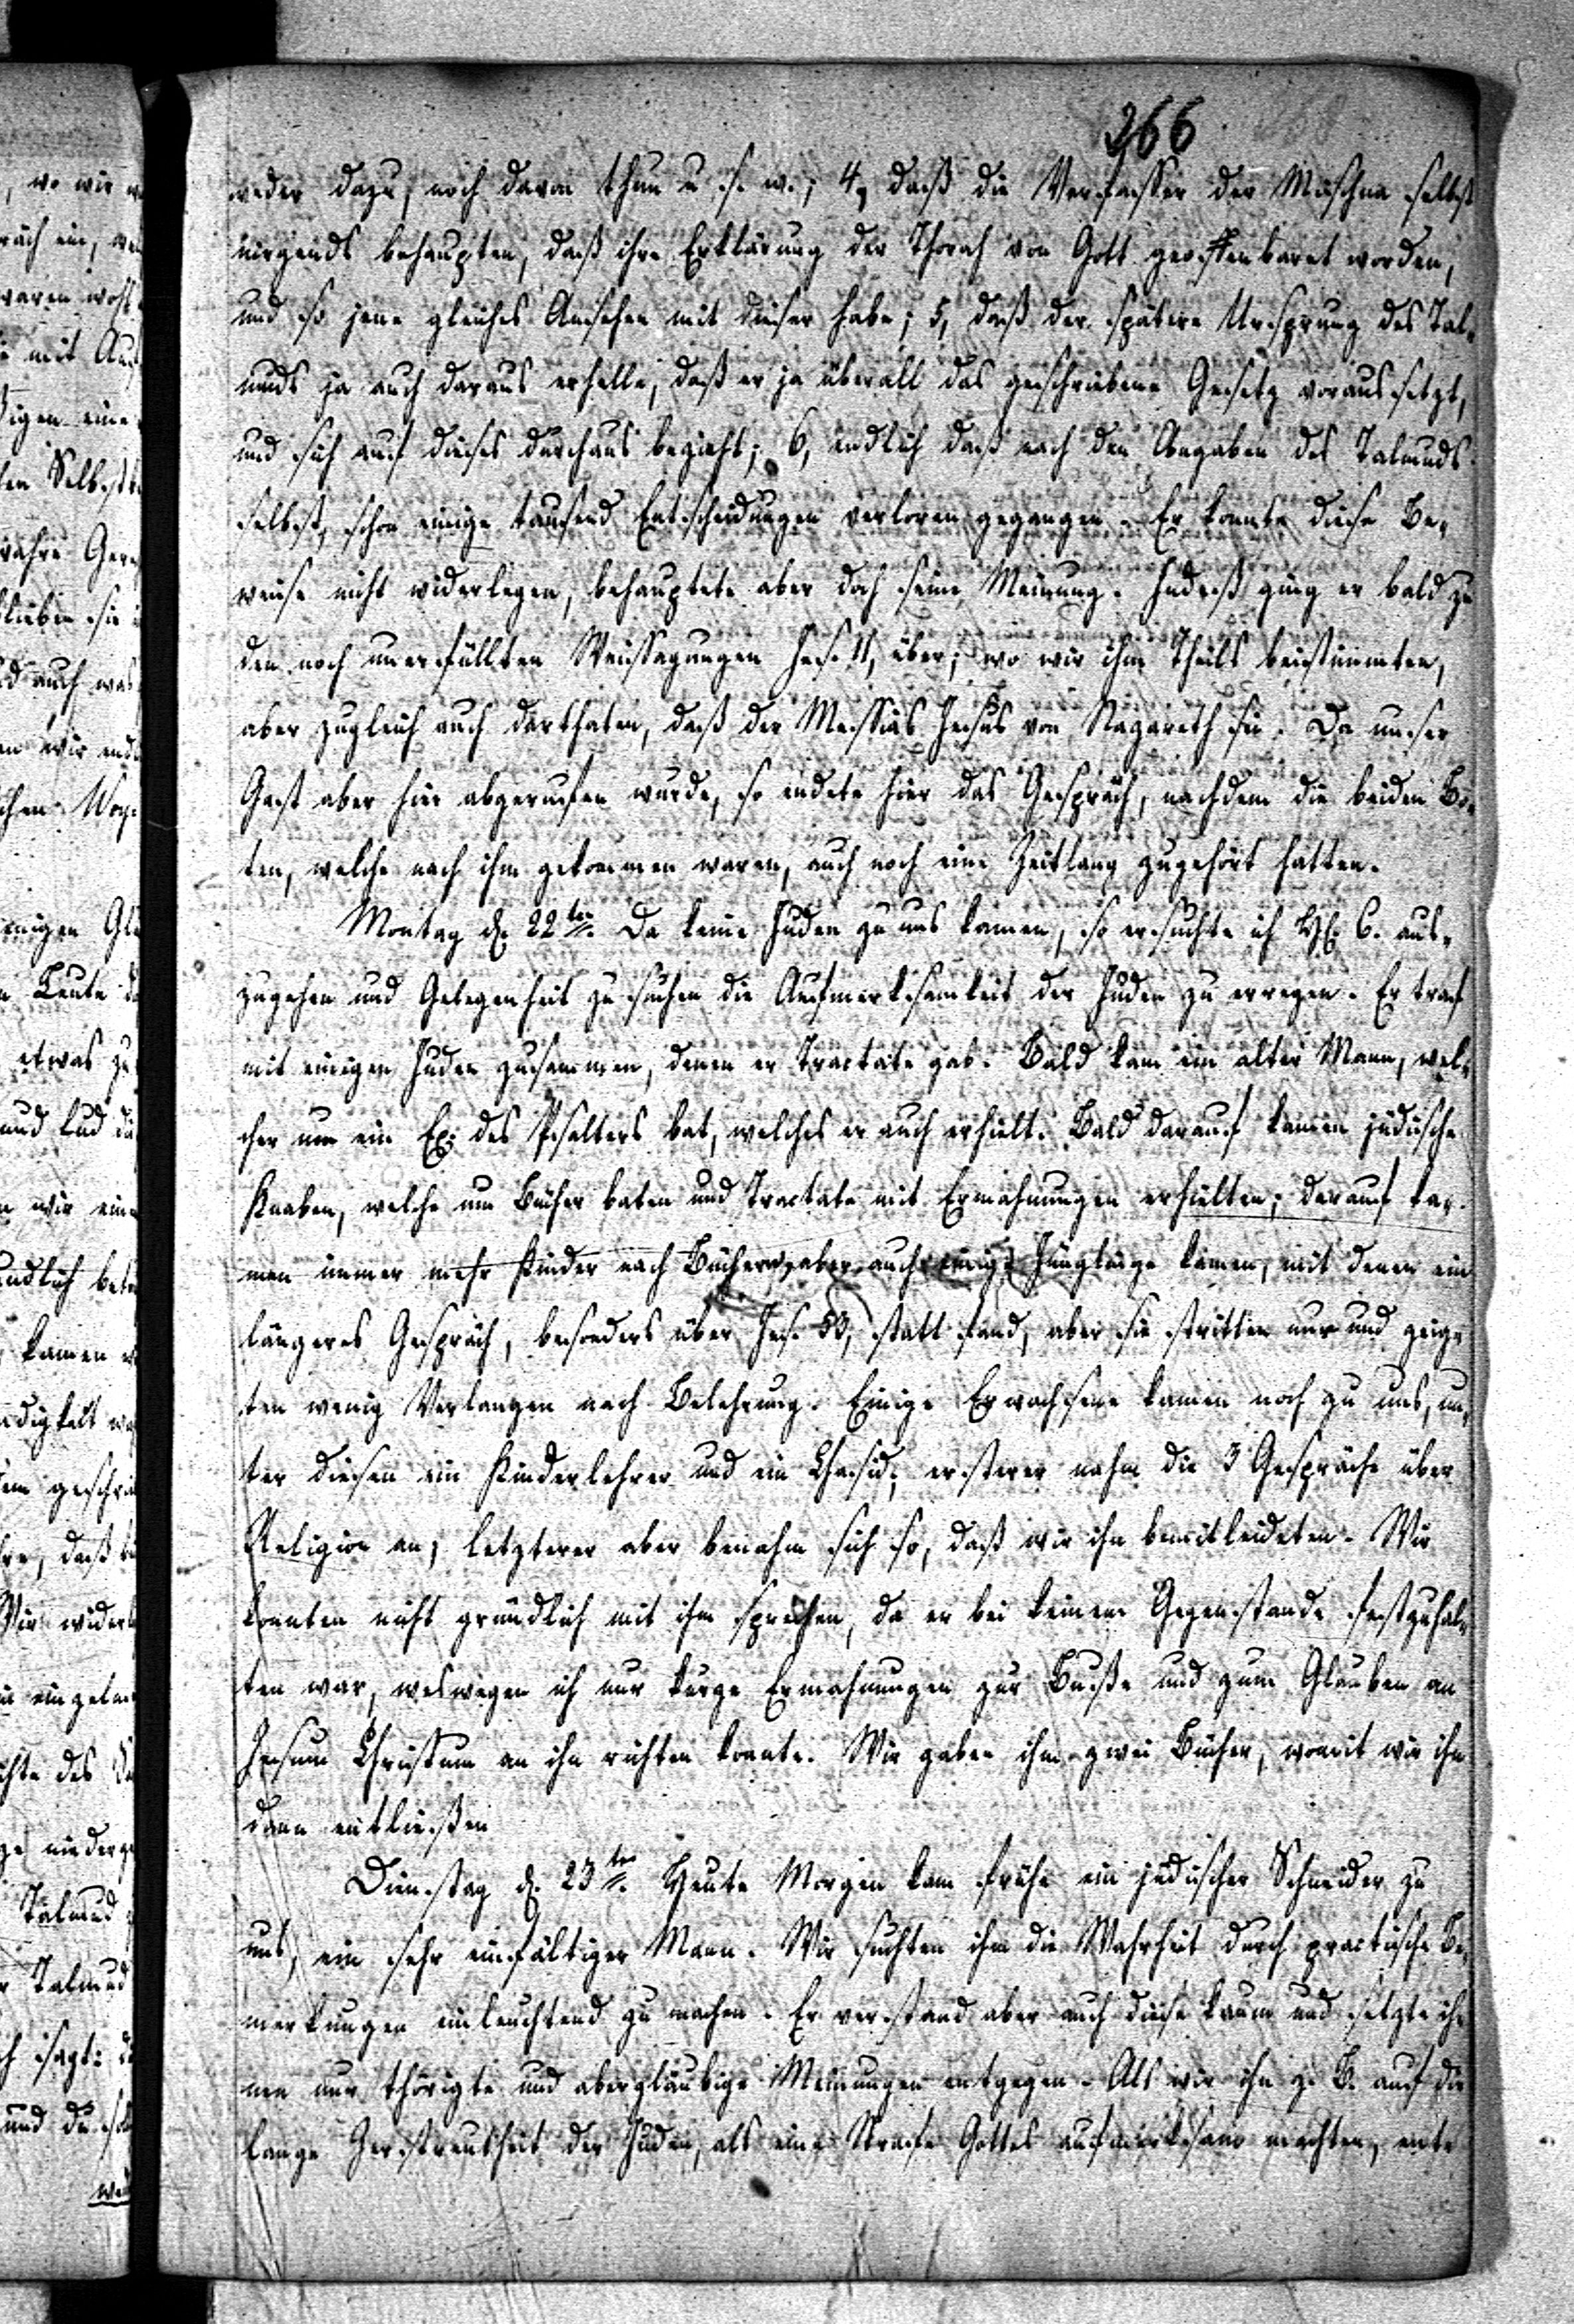 266
weder dazu, noch davon thun u. s. w.; 4, daß die Verfasser der Mischna selbst
nirgends behaupten, daß ihre Erklärung der Thorah von Gott geoffenbaret worden,
und so jene gleiches Ansehen mit dieser habe; 5, daß der spätere Ursprung des Tal-
muds ja auch daraus erhelle, daß er ja überall das geschriebene Gesetz voraussetzt,
und sich auf dieses durchaus bezieht; 6, endlich daß nach den Angaben des Talmuds
selbst, schon einige tausend Entscheidungen verloren gegangen. Er konnte diese Be-
weise nicht widerlegen, behauptete aber doch seine Meinung. Indeß ging er bald zu
den noch unerfüllten Weissagungen Jes. 11, über; wo wir ihm Theils beistimmten,
aber zugleich auch darthaten, daß der Messias Jesus von Nazareth sei. Da unser
Gast aber hier abgerufen wurde, so endete hier das Gespräch, nachdem die beiden Bo-
ten, welche nach ihm gekommen waren, auch noch eine Zeitlang zugehört hatten.
Montag d. 22ten. Da keine Juden zu uns kamen, so ersuchte ich H. C. aus-
zugehen und Gelegenheit zu suchen die Aufmerksamkeit der Juden zu erregen. Er traf
mit einigen Juden zusammen, denen er Tractate gab. Bald kam ein alter Mann, wel-
cher um ein Ex. des Psalters bat, welches er auch erhielt. Bald darauf kamen jüdische
Knaben, welche um Bücher baten und Tractate mit Ermahnungen erhielten; darauf ka-
men immer mehr Kinder nach Büchern, aber auch einige Jünglinge kamen, mit denen ein
längeres Gespräch, besonders über Jes. 53, statt fand, aber sie stritten nur und zeig-
ten wenig Verlangen nach Belehrung. Einige Erwachsene kamen noch zu uns, un-
ter diesen ein Kinderlehrer und ein Chasid; ersterer nahm die 3 Gespräche über
Religion an, letzterer aber benahm sich so, daß wir ihn bemitleideten. Wir
konnten nicht gründlich mit ihm sprechen, da er bei keinem Gegenstande festzuhal-
ten war, weswegen ich nur kurze Ermahnungen zur Buße und zum Glauben an
Jesum Christum an ihn richten konnte. Wir gaben ihm zwei Bücher, womit wir ihn
dann entließen
Dienstag d. 23ten. Heute Morgen kam frühe ein jüdischer Schneider zu
uns, ein sehr einfältiger Mann. Wir suchten ihm die Wahrheit durch practische Be-
merkungen einleuchtend zu machen. Er verstand aber auch diese kaum und setzte ih-
nen nur thörigte und abergläubige Meinungen entgegen. Als wir ihn z. B. auf die
lange Zerstreutheit der Juden, als eine Strafe Gottes aufmerksam machten, ent-